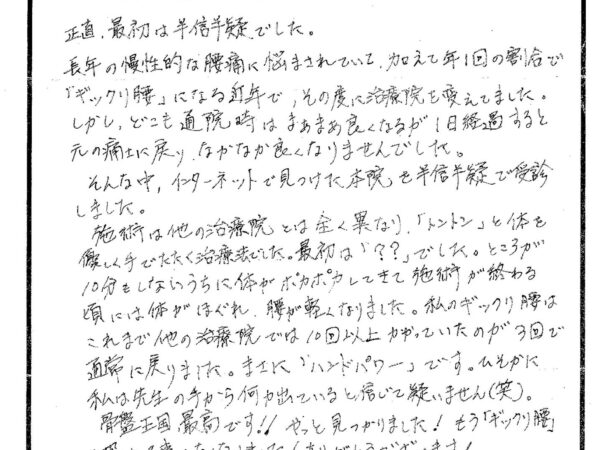 正直、最初は半信半疑でした。
長年の慢性的な腰痛に悩まされていて、加えて年1回の割合で
「ギックリ腰」になる近年で、その度に治療院を変えてました。
しかし、どこも通院時はまあまあ良くなるが1日経過すると
元の痛士に戻り、なかなか良くなりませんでした。
そんな中、インターネットで見つけた本院を半信半疑で受診
しました。
施術は他の治療院とは全く異なり、「トントン」と体を
優しく手でたたく治療法でした。最初は「??」でした。ところが
10分もしないうちに体がポカポカしてきて施術が終わる
頃には体がほぐれ、腰が軽くなりました。私のギックリ腰は
これまで他の治療院では10回以上かかっていたのが3回で
通常に戻りました。まさに「ハンドパワー」です。ひそかに
私は先生の手から何か出ていると信じて疑いません(笑)。
骨盤王国、最高です!!やっと見つかりました!もう「ギックリ腰」